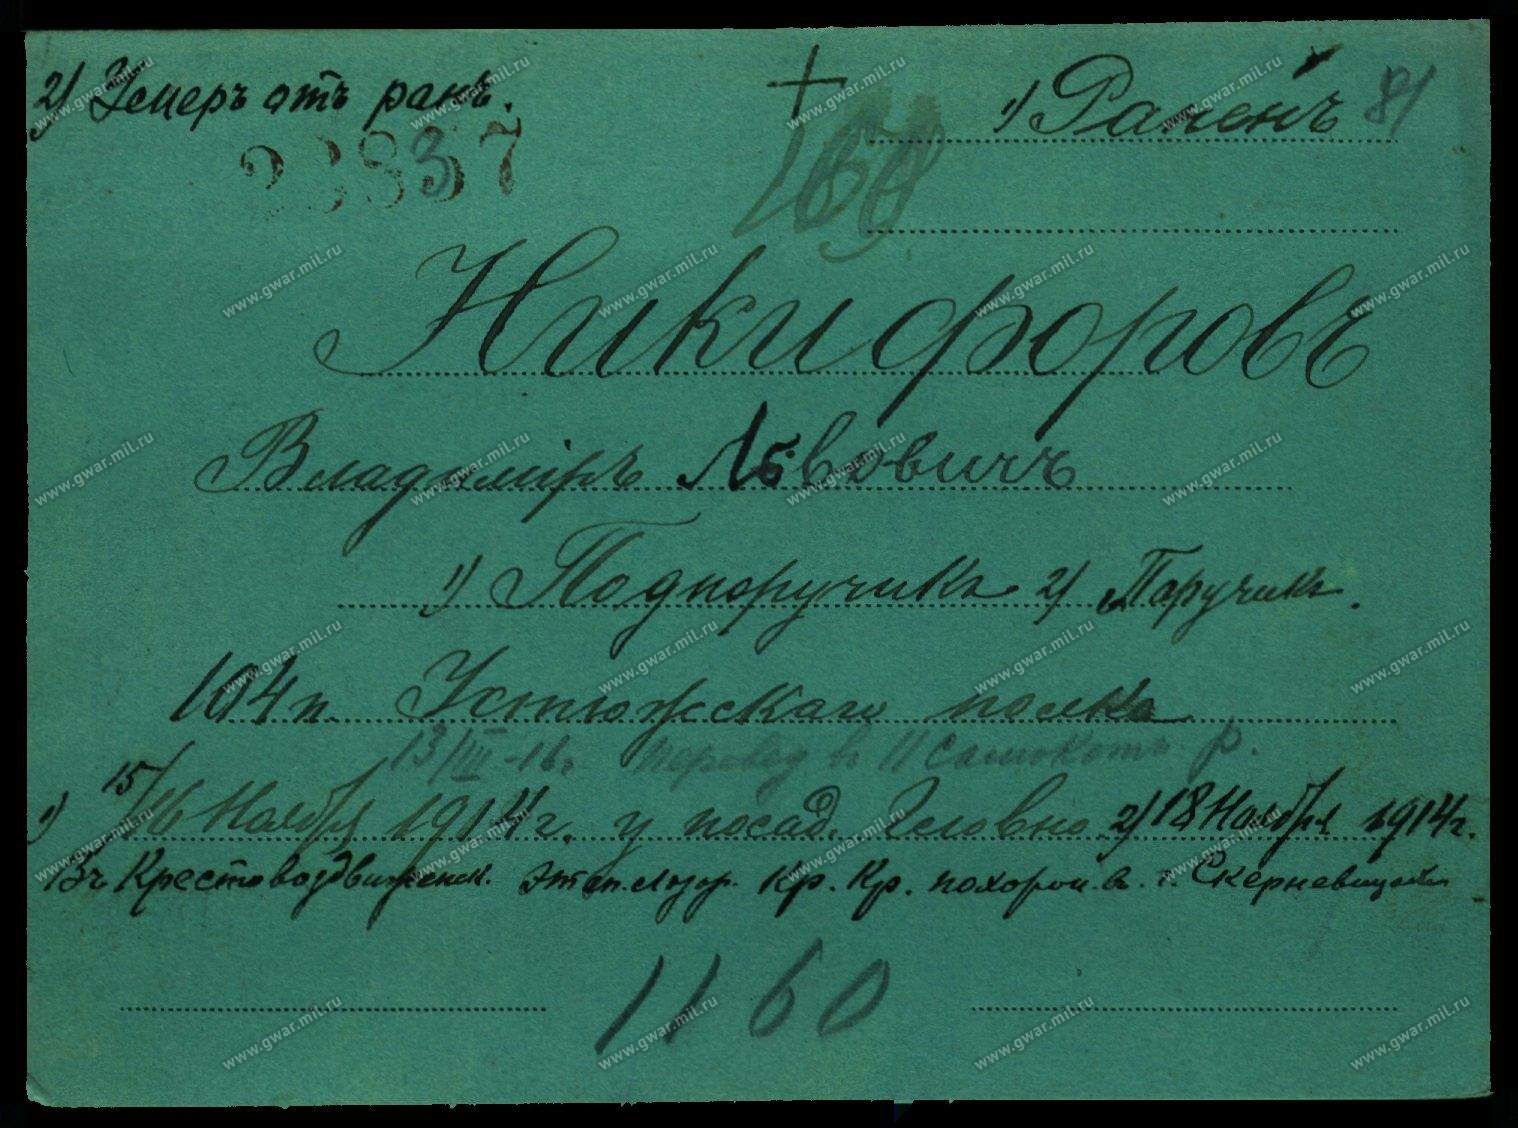 2) Умеръ отъ ранъ.
1) Раненъ 81
23837
Никифоровъ
Владимiръ Львовичъ
1) Подпоручикъ 2) Поручикъ.
104 п. Устюжскаго полка
13/III-16г. перевед въ 11 самокатн. р.
1) 15/16 Ноября 1914 г. у посад. Гловно 2) 18 Ноября 1914 г.
Въ Крестовоздвиженск. этап. лазар. Кр. Кр. похорон. въ г. Скерневицах
1160